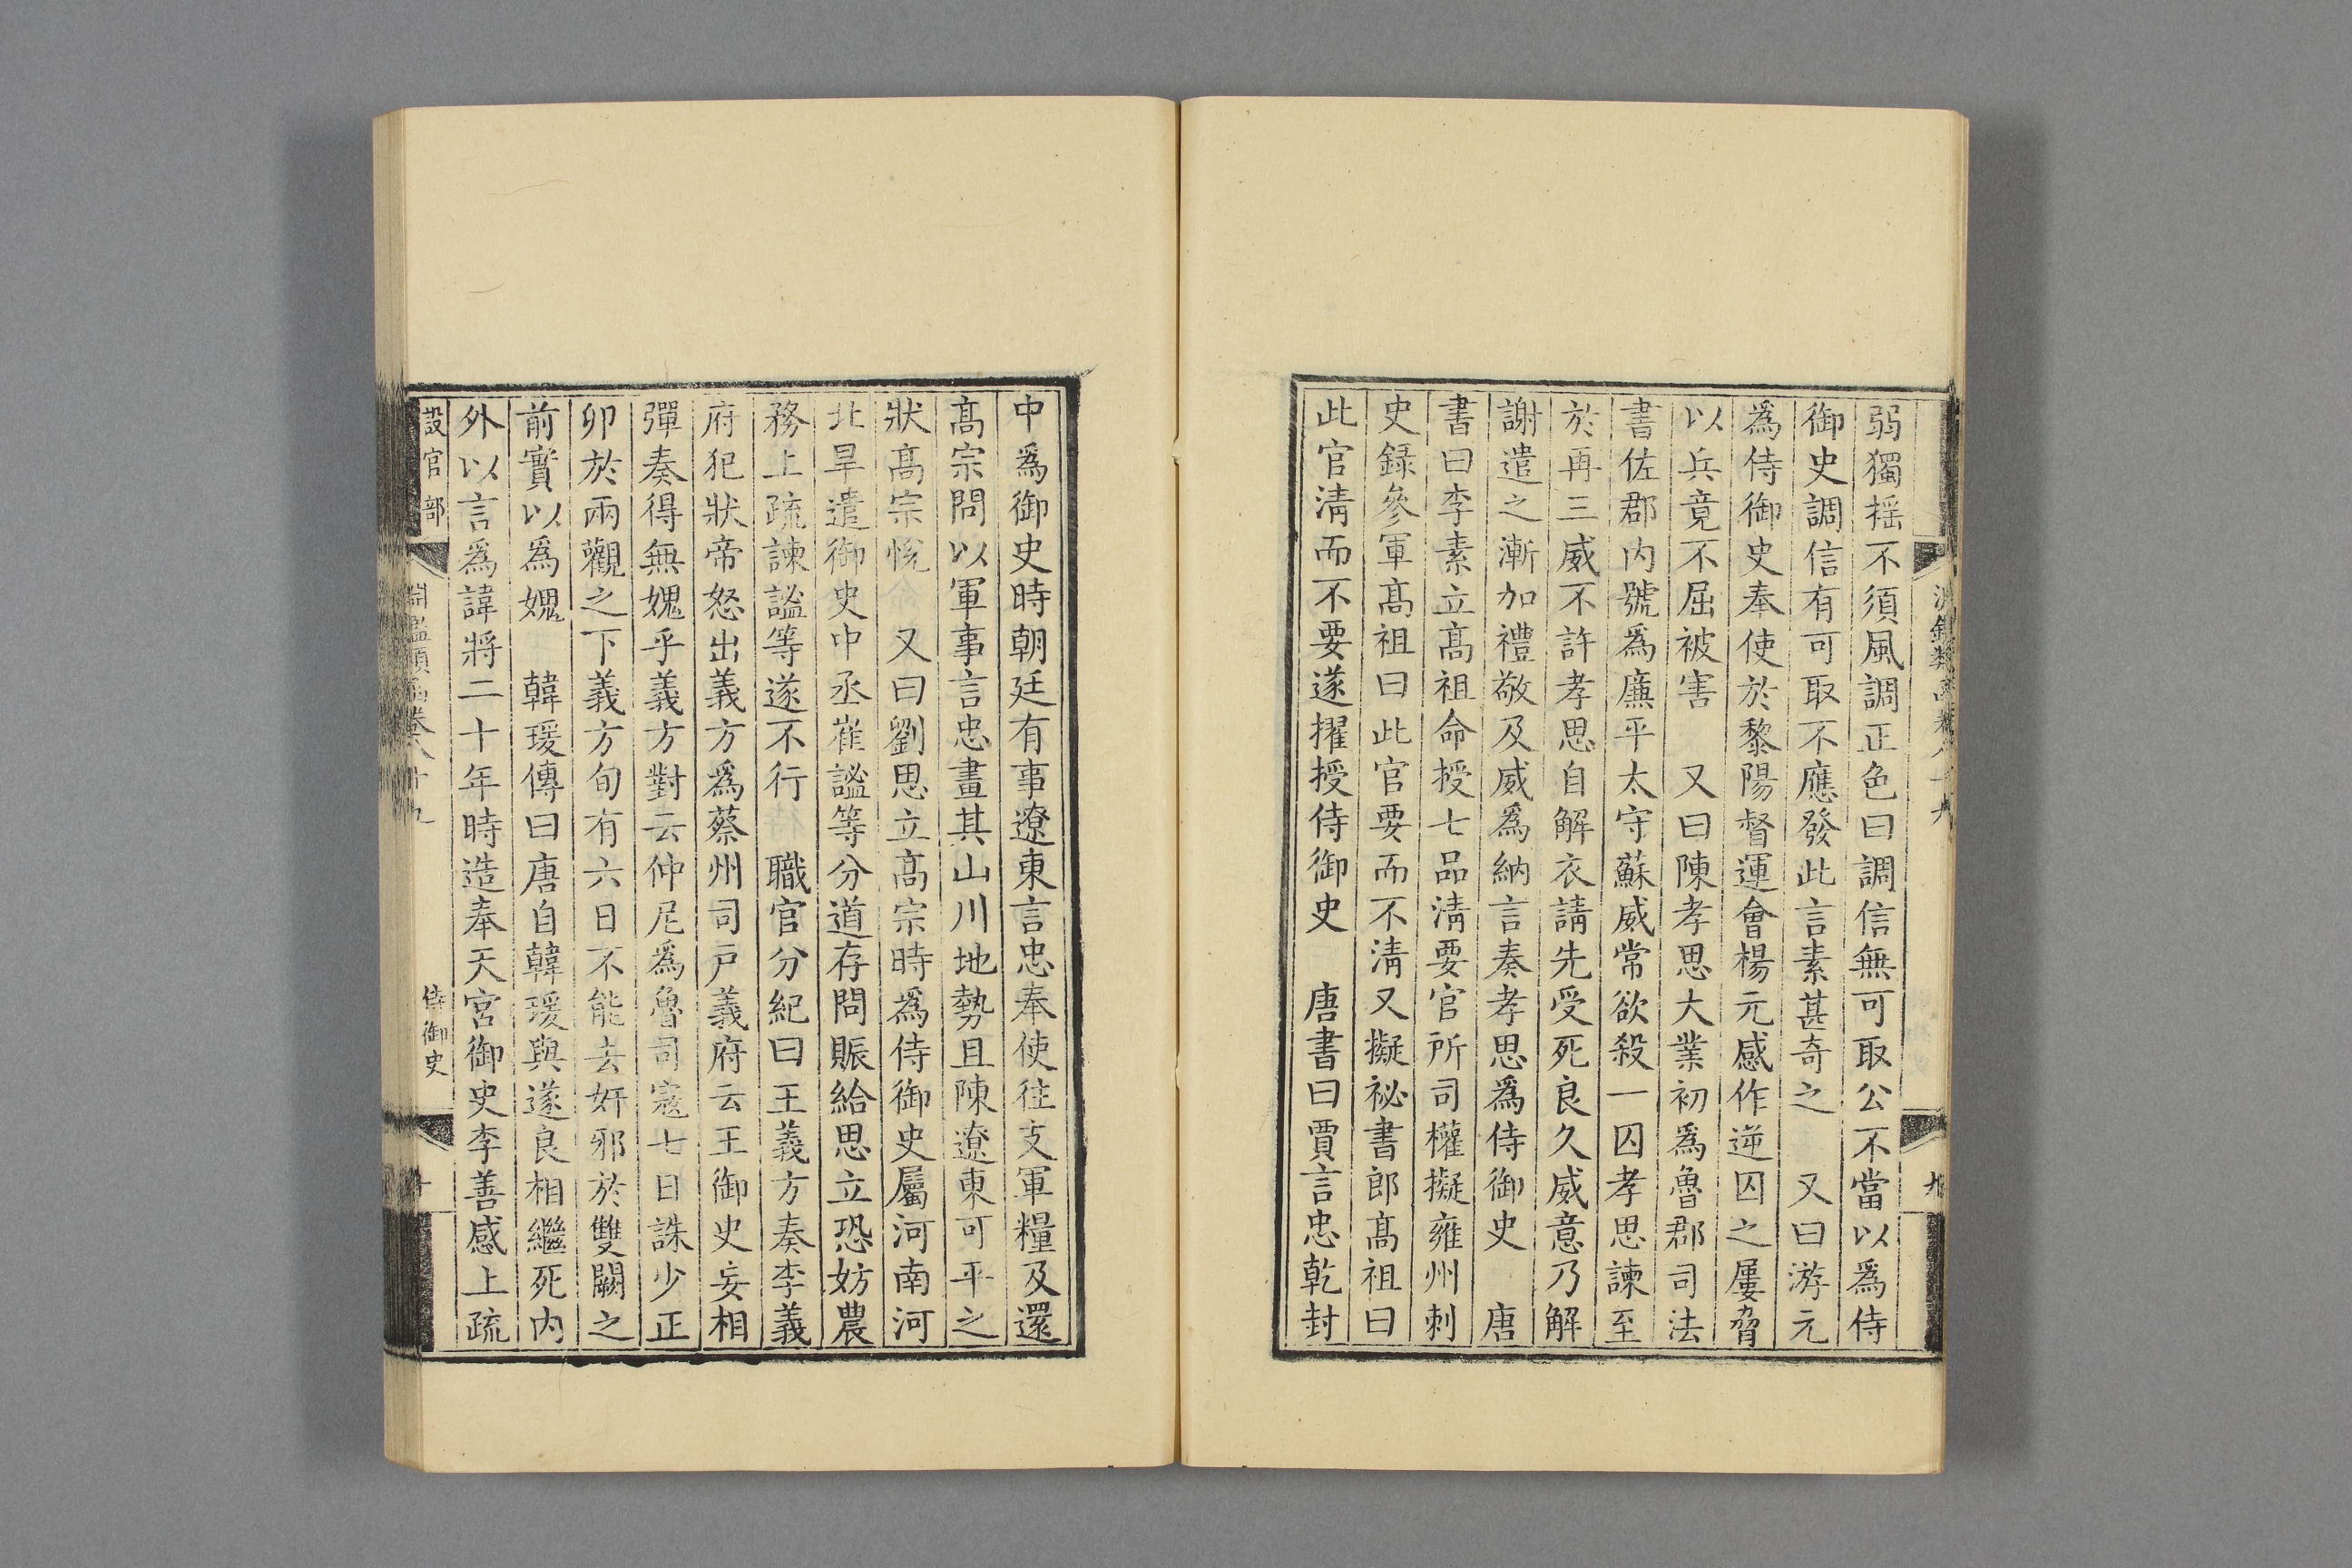 弱獨揺不須風調正色曰調信無可取公不當以爲侍
御史調信有可取不應發此言素甚奇之　又曰游元
爲侍御史奉使於黎陽督運會楊元感作逆囚之屢脅
以兵竟不屈被害　又曰陳孝思大業初爲魯郡司法
書佐郡内號爲廉平太守蘇威常欲殺一囚孝思諫至
於再三威不許孝思自解衣請先受死良久威意乃解
謝遣之漸加禮敬及威爲納言奏孝思爲侍御史　唐
書曰李素立髙祖命授七品淸要官所司權擬雍州刺
史録參軍髙祖曰此官要而不淸又擬祕書郎髙祖曰
此官淸而不要遂擢授侍御史　唐書曰賈言忠乾封
九
中爲御史時朝廷有事遼東言忠奉使往支軍糧及還
髙宗問以軍事言忠畫其山川地勢且陳遼東可平之
狀髙宗悅　又曰劉思立髙宗時爲侍御史屬河南河
北旱遣御史中丞崔謐等分道存問賑給思立恐妨農
務上疏諫謐等遂不行　職官分紀曰王義方奏李義
府犯狀帝怒出義方爲蔡州司戸義府云王御史妄相
彈奏得無媿乎義方對云仲尼爲魯司寇七日誅少正
卯於兩觀之下義方旬有六日不能去奸邪於雙闕之
前實以爲媿　韓瑗傳曰唐自韓瑗與遂良相繼死内
外以言爲諱將二十年時造奉天宮御史李善感上疏
設官部
淵鑑類函卷八十九
侍御史
十